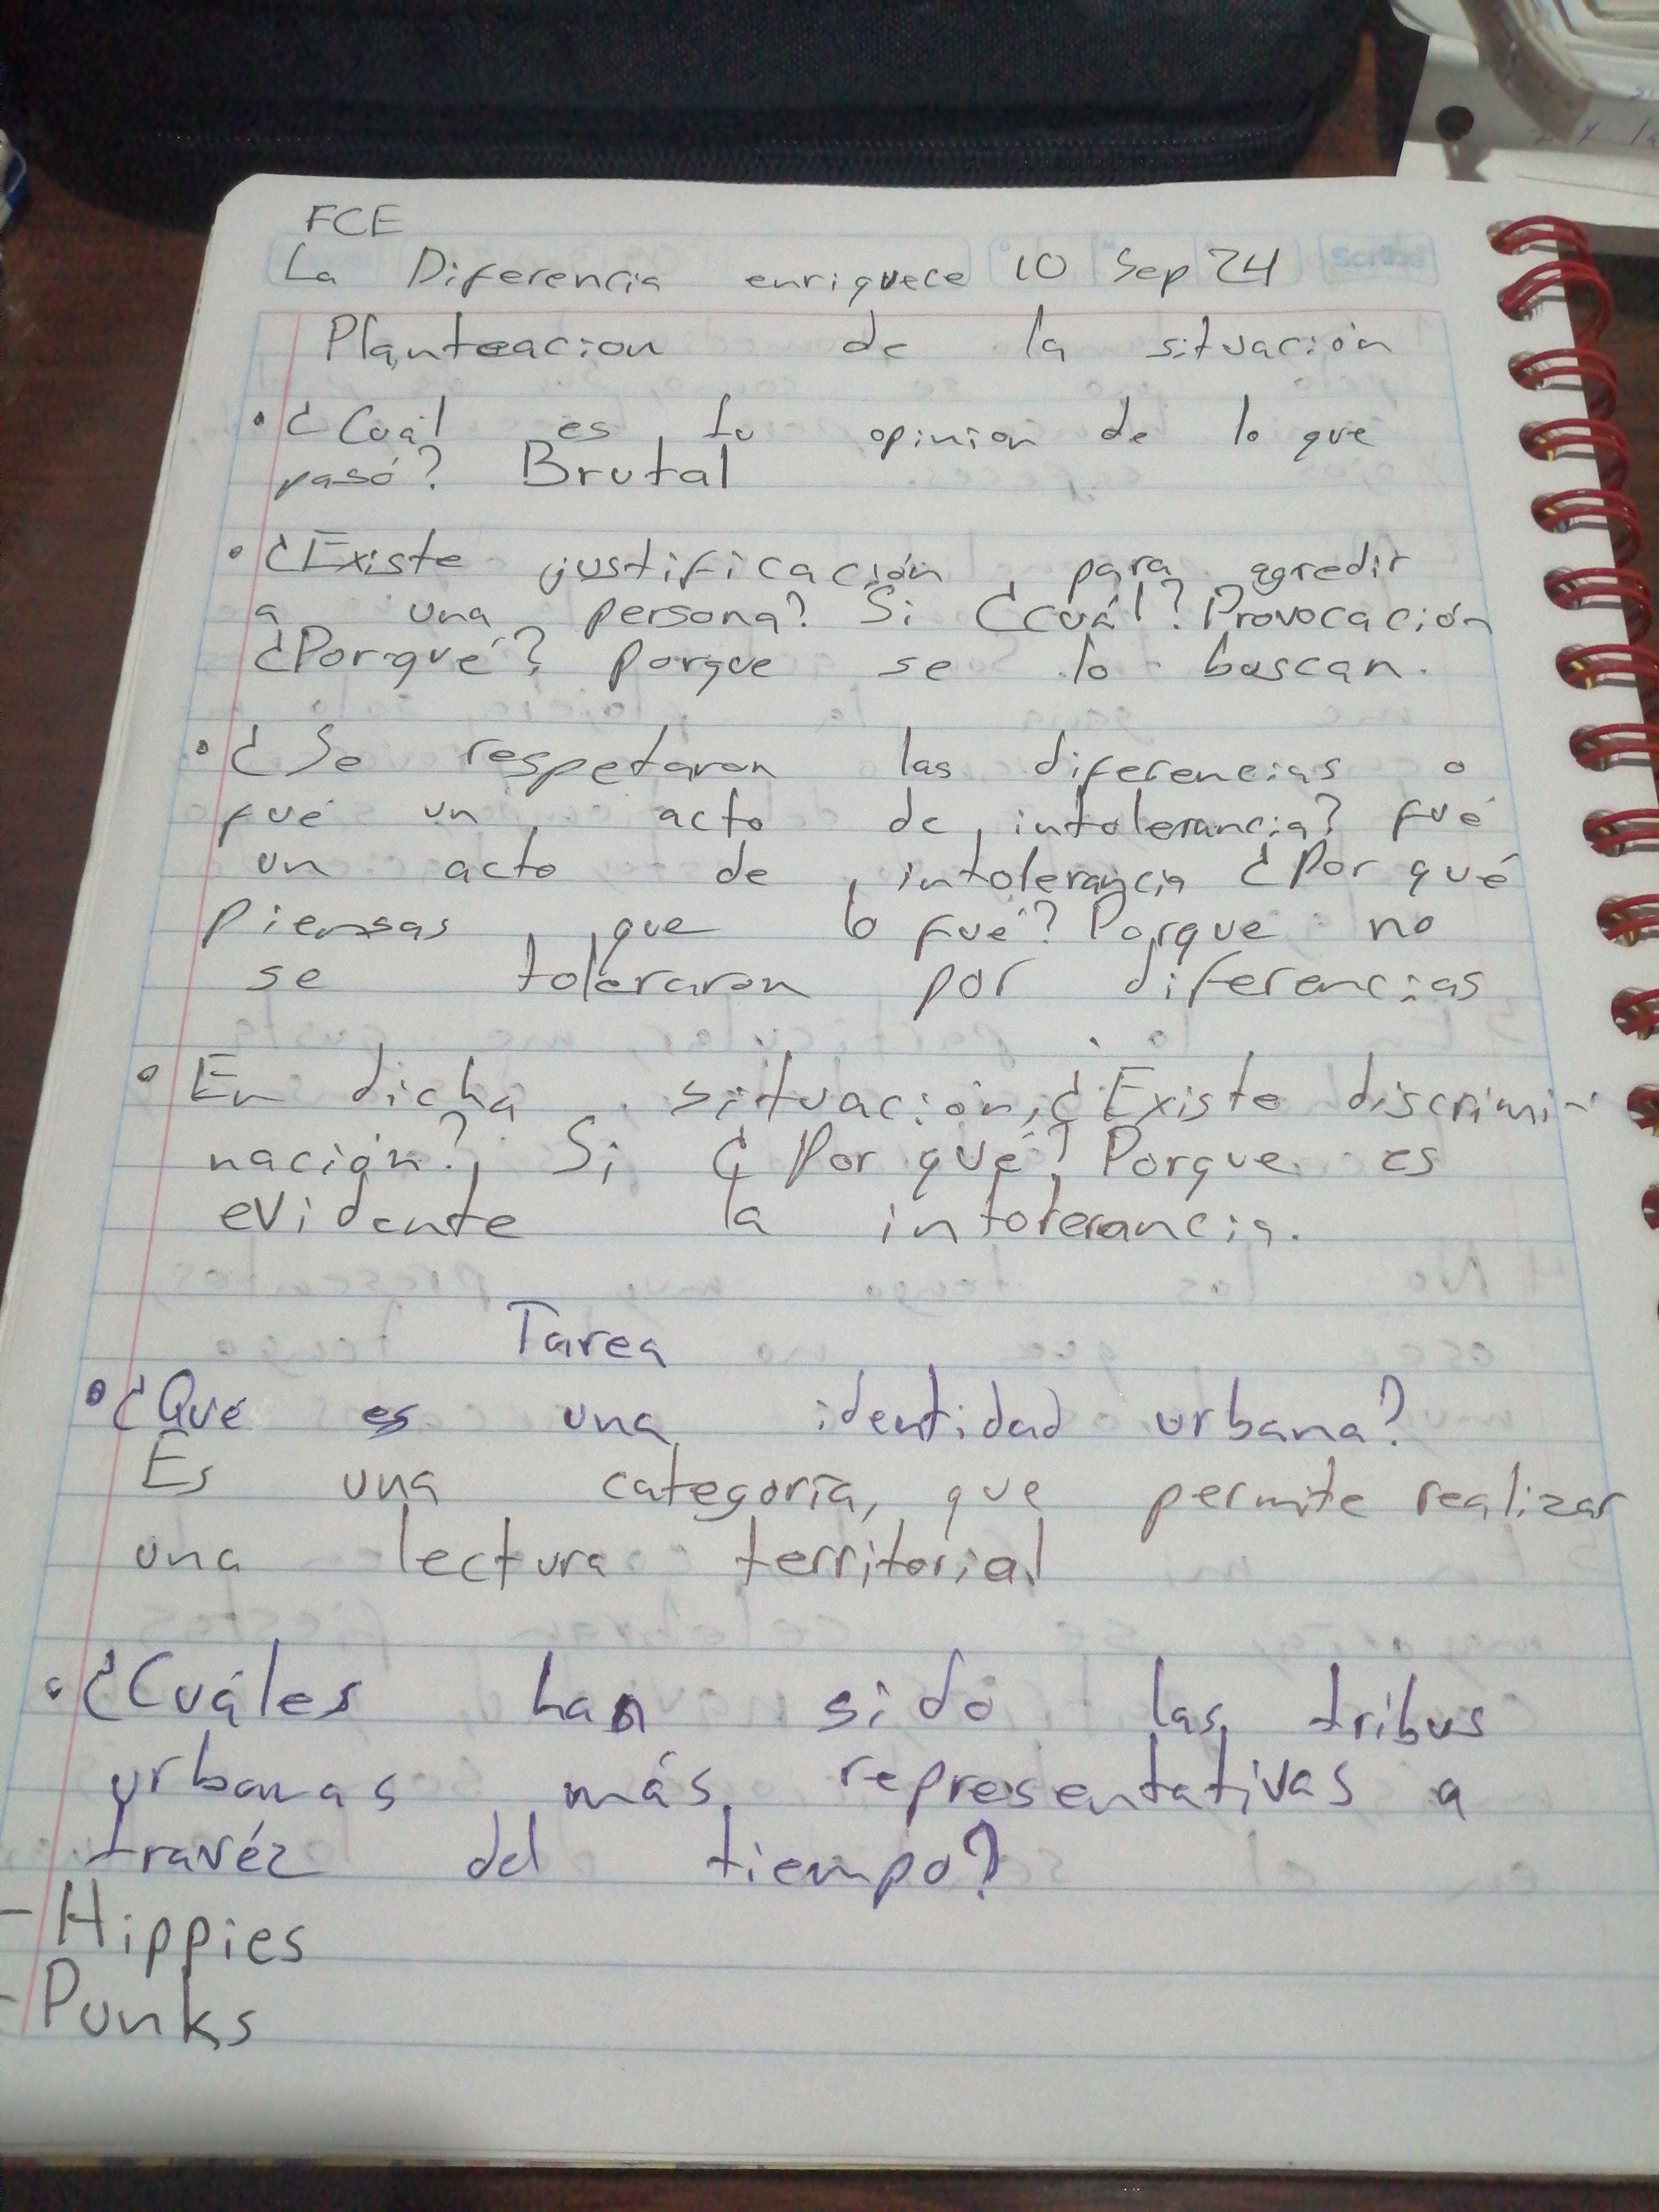 FCE
La Diferencia enriquece 10 Sep 24
Scribe
Planteacion de la situación
• ¿Cuál es tu opinion de lo que
pasó? Brutal
• ¿Existe justificación para agredir
a una persona? Si ¿cuál? Provocación
¿Porqué? porque se lo buscan.
• ¿Se respetaron las diferencias o
fué un acto de intolerancia? fué
un acto de intolerancia ¿Por qué
piensas que lo fué? Porque no
se toleraron por diferencias
• En dicha situación, ¿Existe discrimi-
nación? Si ¿Por qué? Porque es
evidente la intolerancia.
Tarea
• ¿Qué es una identidad urbana?
Es una categoría, que permite realizar
una lectura territorial
• ¿Cuáles han sido las tribus
urbanas más representativas a
travéz del tiempo?
- Hippies
- Punks